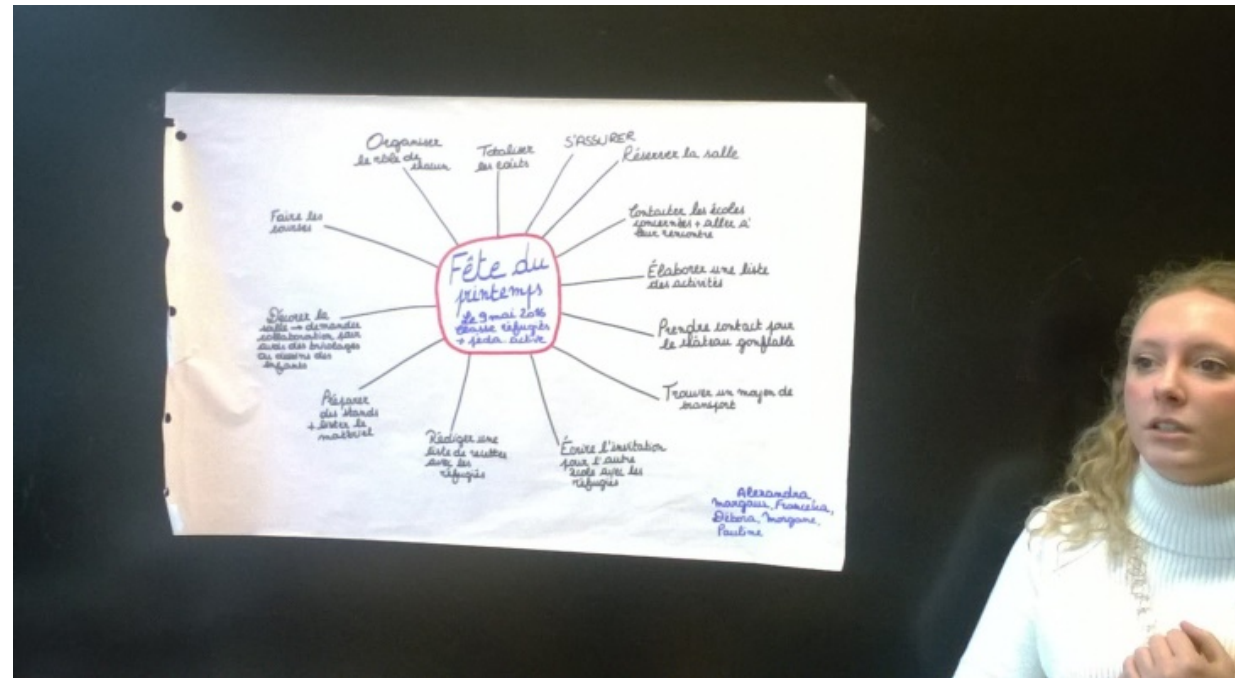 Fête du
printemps
Le 9 mai 2016
classe réfugiés
+ péda. active
Organiser
le rôle de
chacun
Totaliser
les coûts
S'ASSURER
Réserver la salle
Contacter les écoles
concernées + aller à
leur rencontre
Élaborer une liste
des activités
Prendre contact pour
le château gonflable
Trouver un moyen de
transport
Écrire l'invitation
pour l'autre
école avec les
réfugiés
Rédiger une
liste de recettes
avec les
réfugiés
Préparer
des stands
+ lister le
matériel
Décorer la
salle → demander
collaboration pour
avoir des bricolages
ou dessins des
enfants
Faire les
courses
Alexandra,
Margaux, Francesca,
Débora, Morgane,
Pauline